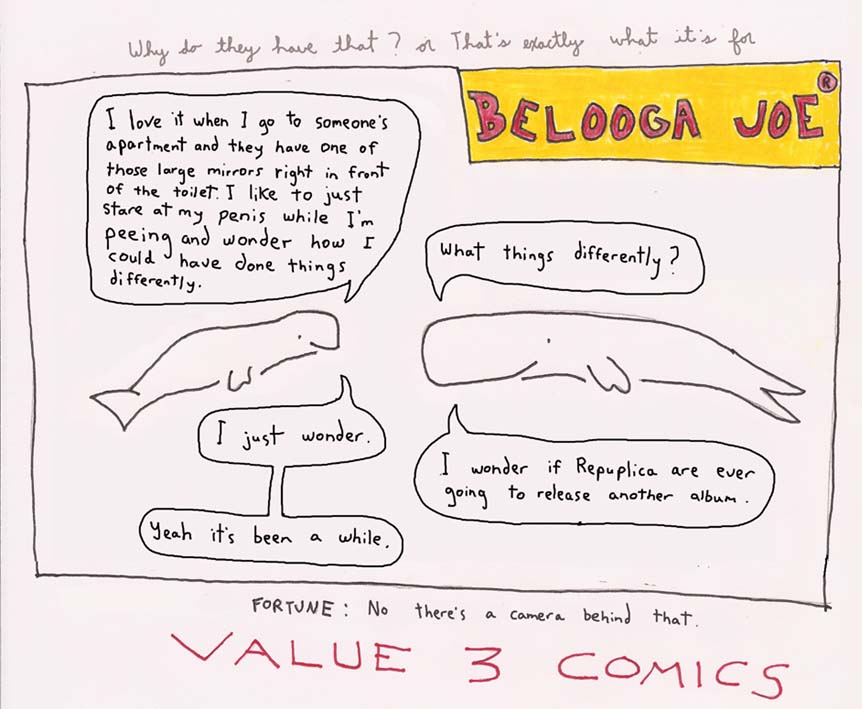 Why do they have that? or That's exactly what it's for
BELOOGA JOE®
I love it when I go to someone's
apartment and they have one of
those large mirrors right in front
of the toilet. I like to just
stare at my penis while I'm
peeing and wonder how I
could have done things
differently.
What things differently?
I just wonder.
I wonder if Repuplica are ever
going to release another album.
Yeah it's been a while.
FORTUNE: No there's a camera behind that.
VALUE 3 COMICS